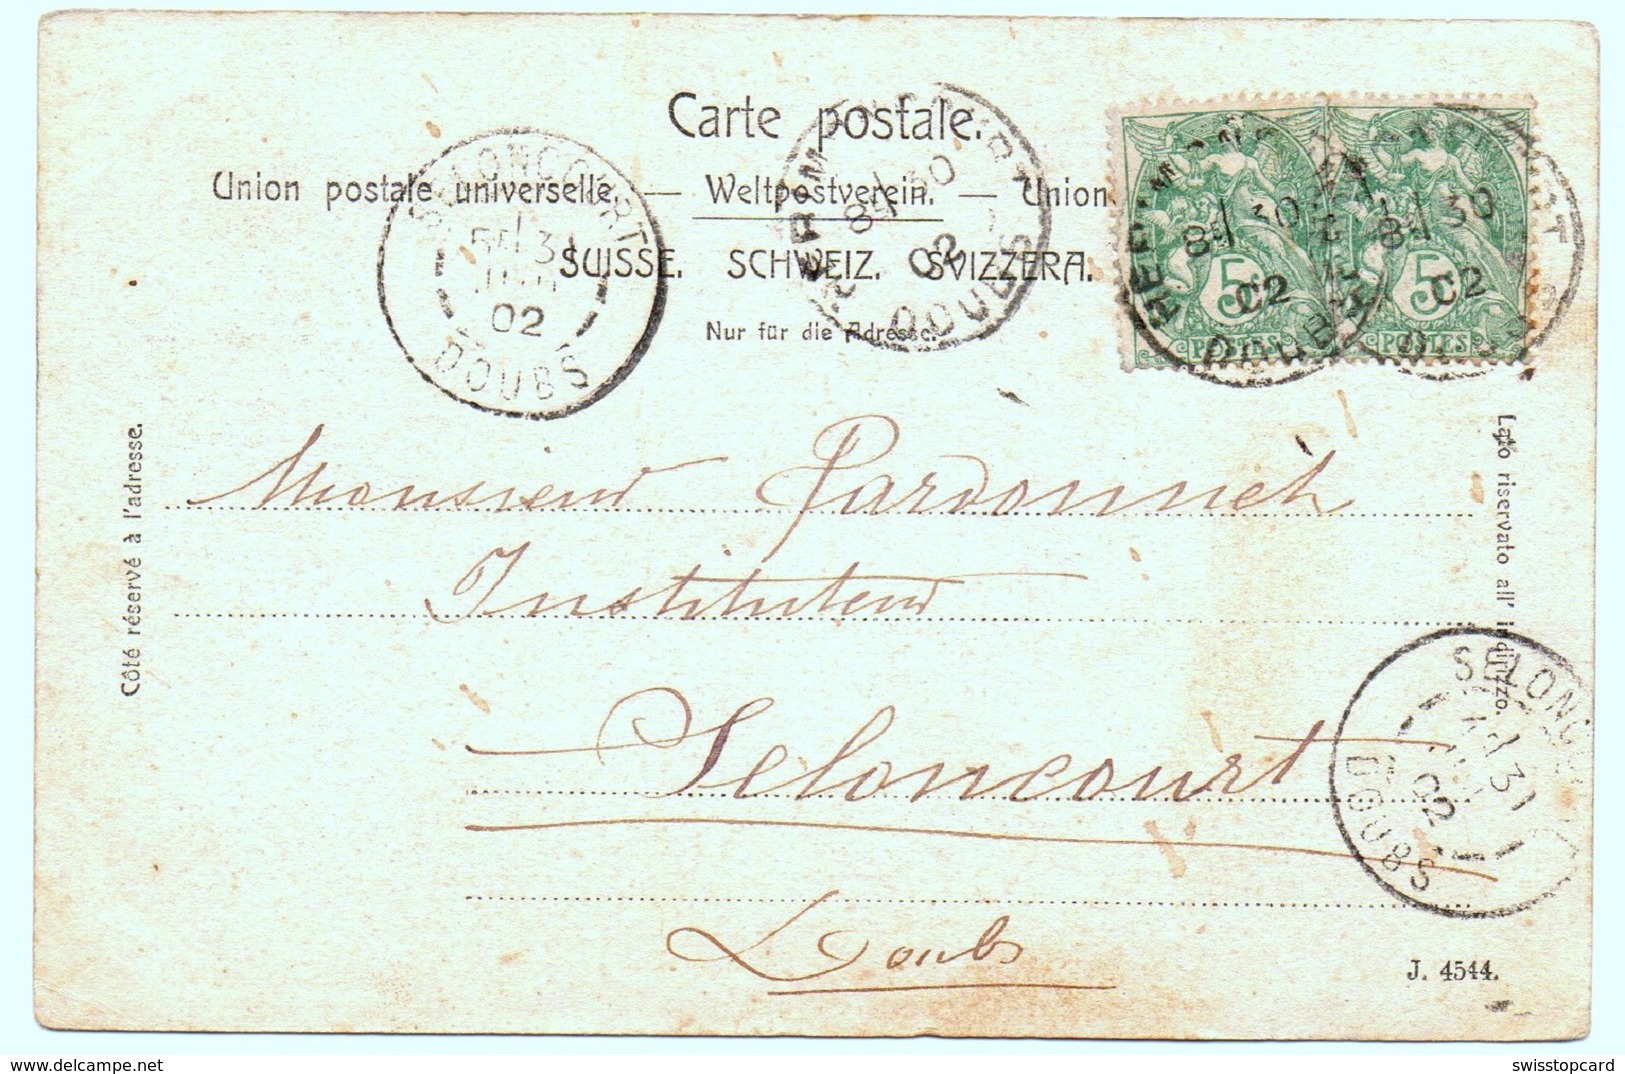 Carte postale.
Union postale universelle. — Weltpostverein. — Union
SUISSE. SCHWEIZ. SVIZZERA.
Nur für die Adresse.
SELONCOURT
31
02
DOUBS
30
02
DOUBS
HERIMONCOURT
8 30
02
DOUBS
5
POSTES
8 30
02
5
POSTES
Côté réservé à l'adresse.
Lato riservato all' indirizzo.
Monsieur Pardonnet
Instituteur
Seloncourt
Doubs
SELONCOURT
31
02
DOUBS
J. 4544.
swisstopcard
www.delcampe.net